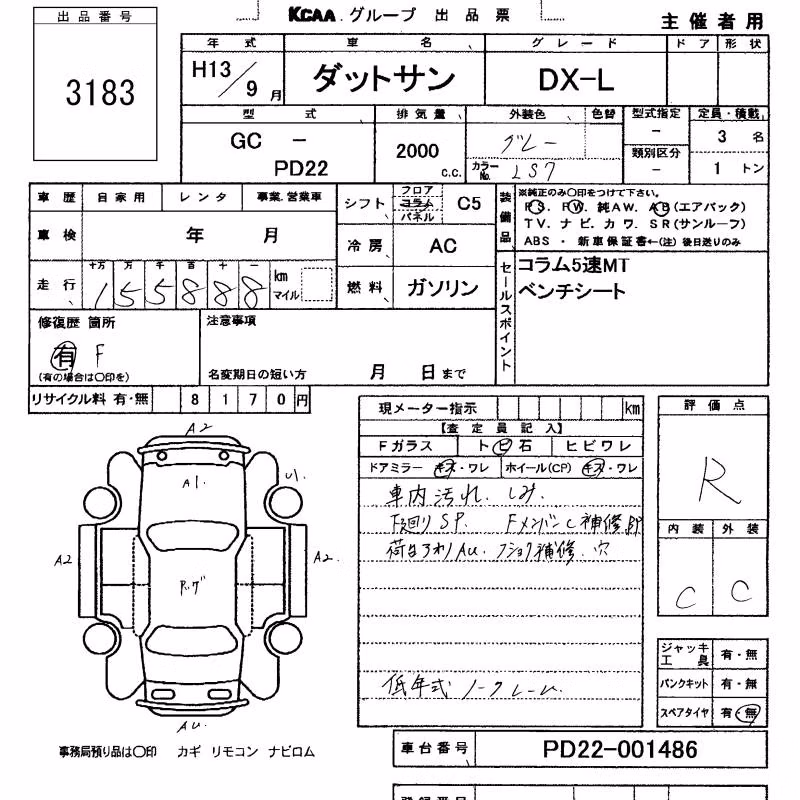 KCAA グループ 出品票
主催者用
出品番号
3183
年式 車名 グレード ドア 形状
H13/9月 ダットサン DX-L
型式 排気量 外装色 色替 型式指定 定員・積載
GC - グレー - 3 名
PD22 2000 c.c. カラーNo. LS7 類別区分 - 1 トン
車歴 自家用 レンタ 事業.営業車
シフト フロア コラム パネル C5
装備品
※純正のみ〇印をつけて下さい。
PS. PW. 純AW. AB(エアバック)
TV. ナビ. カワ. SR(サンルーフ)
ABS ・ 新車保証書←(注) 後日送りのみ
車検 年 月
冷房 AC
走行 十万 万 千 百 十 一
155888 km マイル
燃料 ガソリン
セールスポイント
コラム5速MT
ベンチシート
修復歴 箇所
有 F
(有の場合は〇印を)
注意事項
名変期日の短い方 月 日まで
リサイクル料 有・無 8170円
現メーター指示 km
【査定員記入】
Fガラス トビ石 ヒビワレ
ドアミラー キズ・ワレ ホイール(CP) キズ・ワレ
車内汚れ. しみ.
下廻りSP. Fメンバーし補修跡
AU. 補修. 穴
低年式 ノークレーム.
評価点
R
内装 外装
C C
ジャッキ工具 有・無
パンクキット 有・無
スペアタイヤ 有・無
A2
A1.
U1.
A2
A2.
AU.
事務局預り品は〇印 カギ リモコン ナビロム
車台番号 PD22-001486